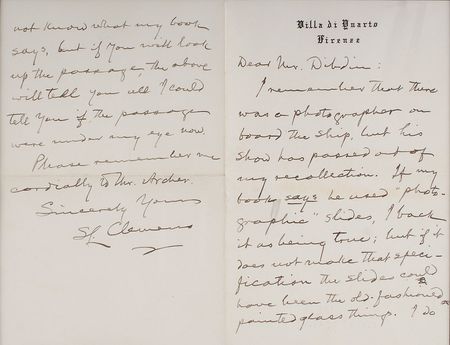 Villa di Quarto
Firenze
Dear Mr. Dibdin:
I remember that there
was a photographer on
board the ship, but his
show has passed out of
my recollection. If my
book says he used "photo-
graphic" slides, I back
it as being true; but if it
does not make that speci-
fication the slides could
have been the old-fashioned
painted glass things. I do
not know what my book
says, but if you will look
up the passage, the above
will tell you all I could
tell you if the passage
were under my eye now.
Please remember me
cordially to Mr. Archer.
Sincerely Yours
SL Clemens